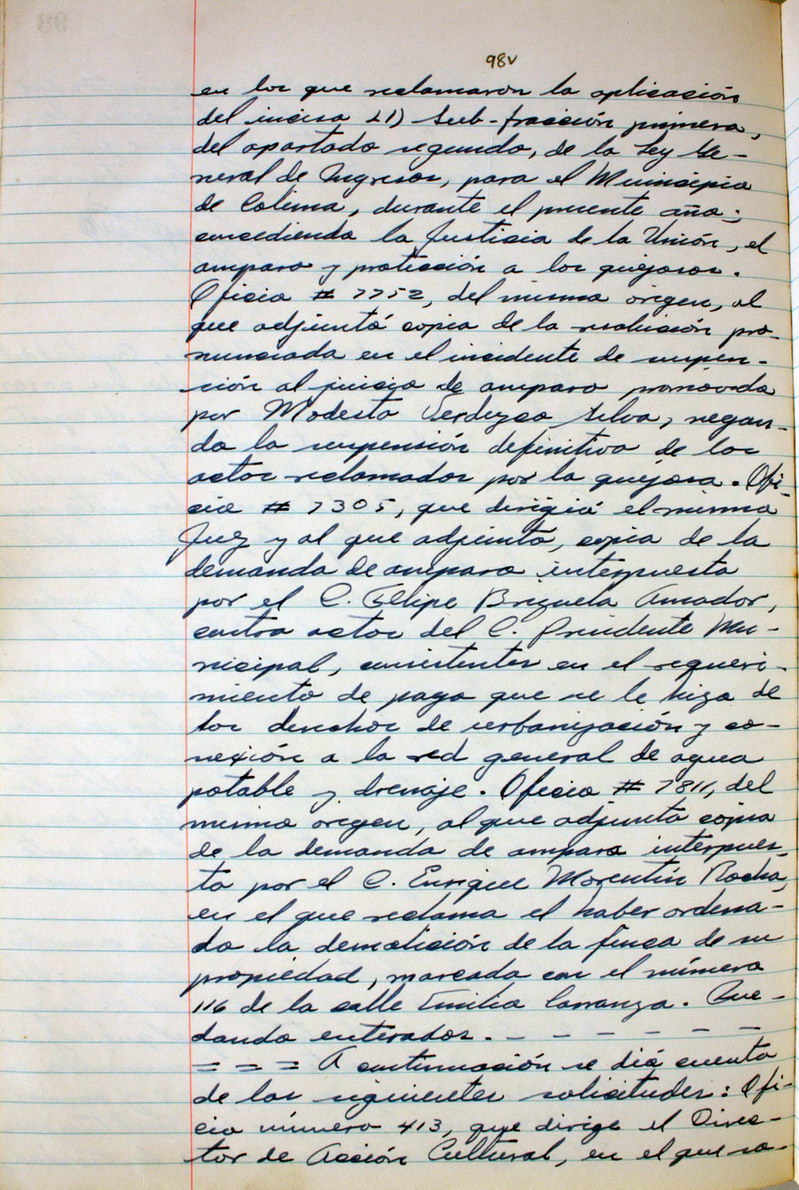 98v
en los que reclamaron la aplicación
del inciso L1) Sub-fracción primera,
del apartado segundo, de la Ley Ge-
neral de Ingresos, para el Municipio
de Colima, durante el presente año;
concediendo la Justicia de la Unión, el
amparo y protección a los quejosos.
Oficio # 7752, del mismo origen, al
que adjuntá copia de la resolución pro-
nunciada en el incidente de suspen-
ción al juicio de amparo promovido
por Modesta Verduzco Silva, negan-
do la suspensión definitiva de los
actos reclamados por la quejosa. Ofi-
cio # 7305, que dirigió el mismo
Juez y al que adjunta, copia de la
demanda de amparo interpuesta
por el C. Felipe Brizuela Amador,
contra actos del C. Presidente Mu-
nicipal, consistentes en el requeri-
miento de pago que se le hizo de
los derechos de urbanización y co-
nexión a la red general de agua
potable y drenaje. Oficio # 7811, del
mismo origen, al que adjunta copia
de la demanda de amparo interpues-
ta por el C. Enrique Morentín Rocha,
en el que reclama el haber ordena-
do la demolición de la finca de su
propiedad, marcada con el número
116 de la calle Emilio Carranza. Que-
dando enterados. - - - - - -
= = = A continuación se dió cuenta
de las siguientes solicitudes: Ofi-
cio número 413, que dirige el Direc-
tor de Acción Cultural, en el que so-